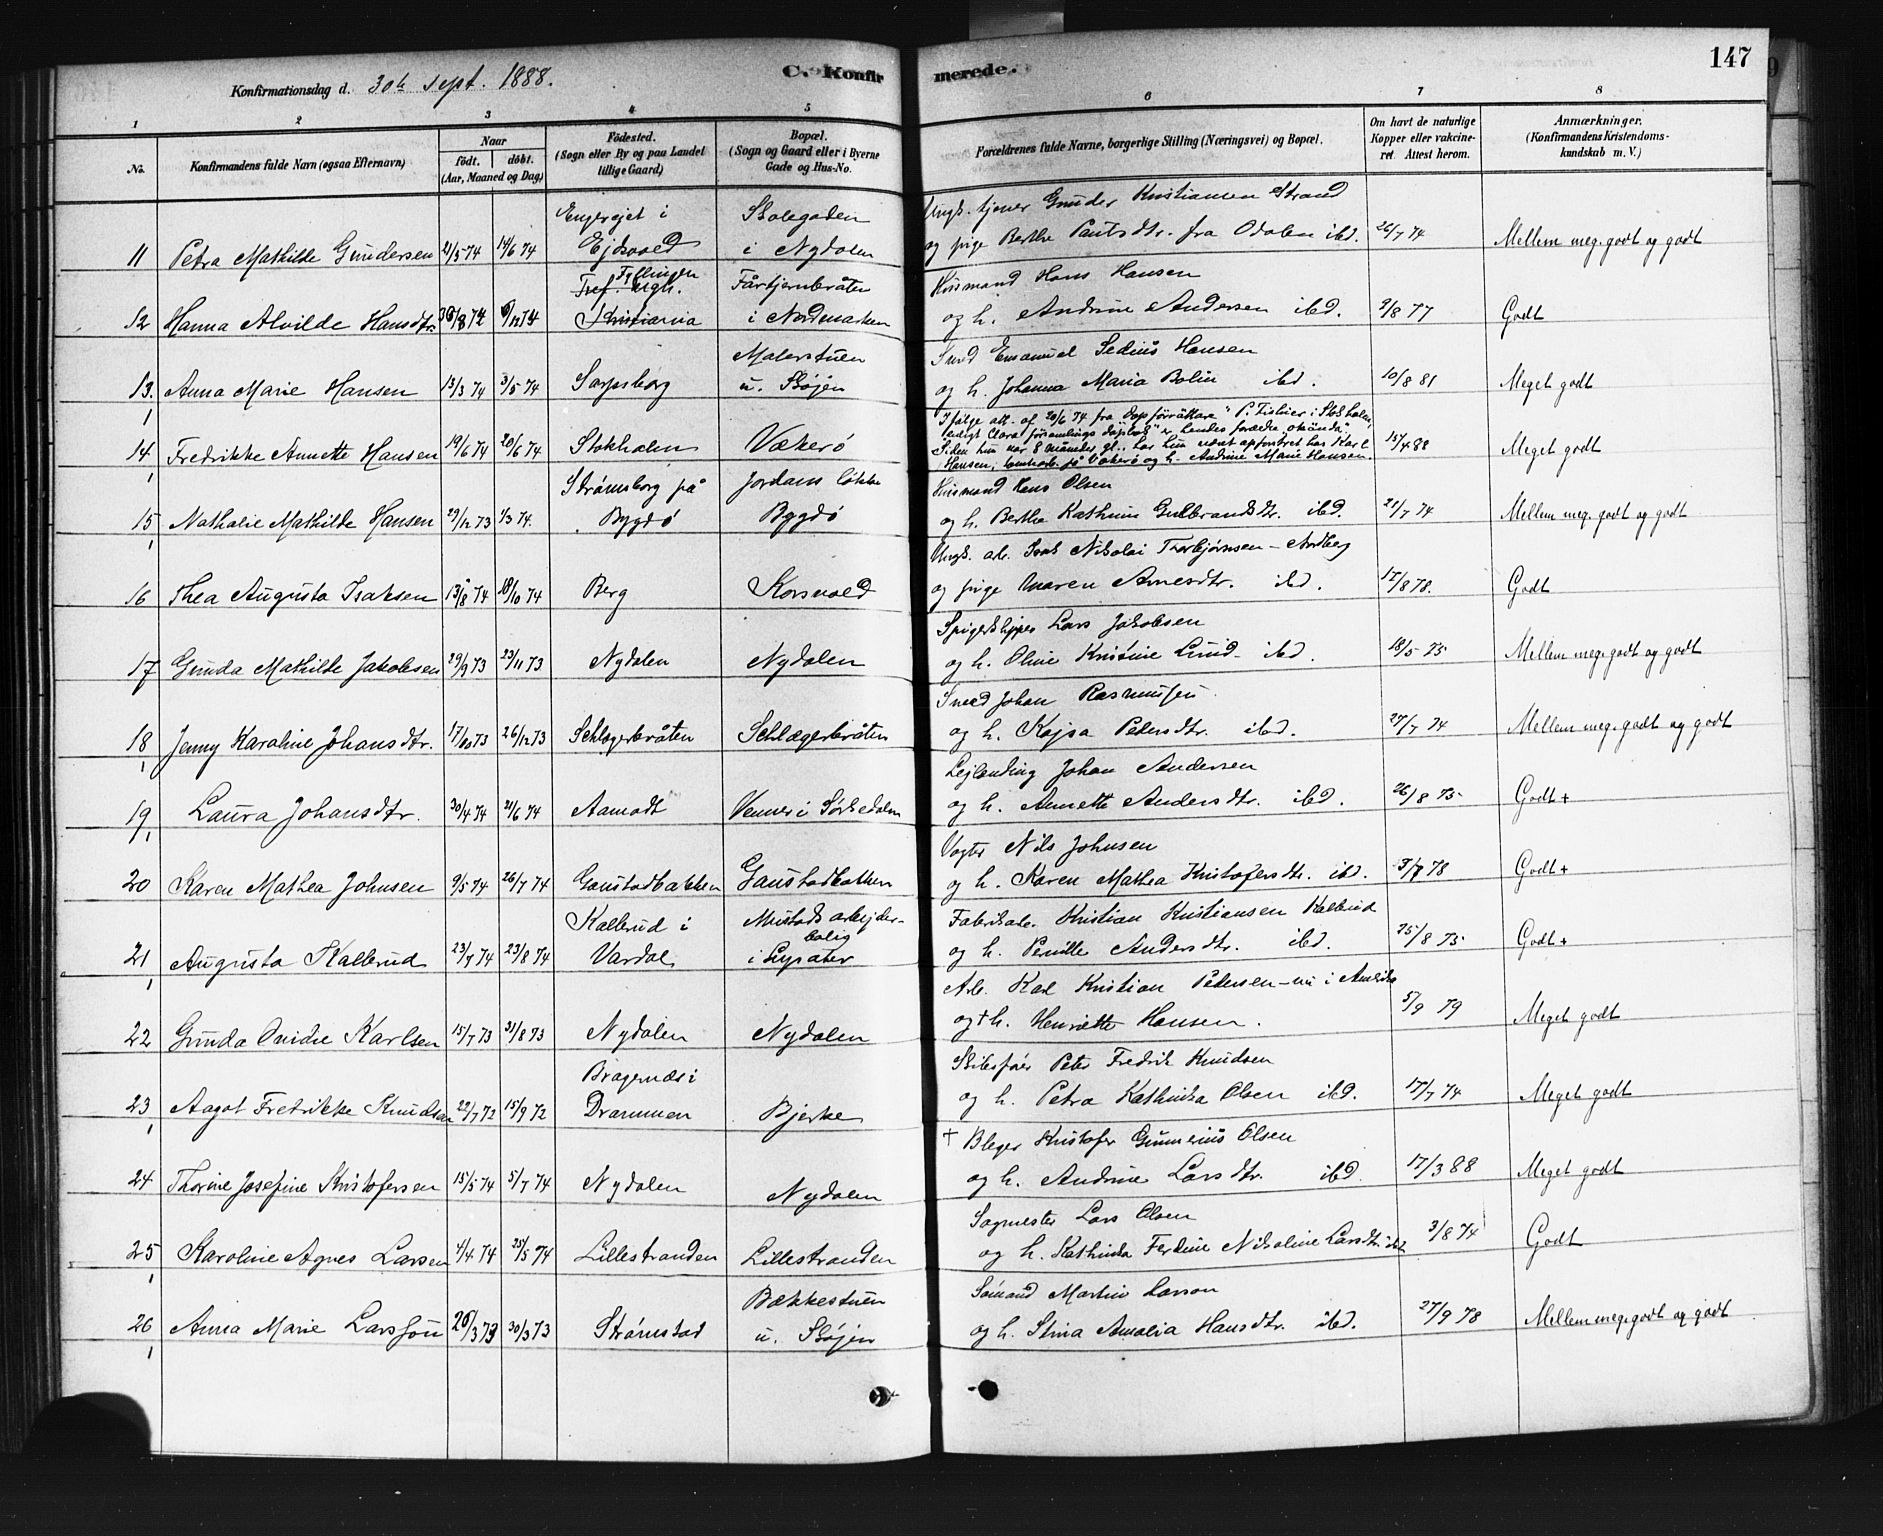 147
Konfirmationsdag d. 30te sept. 1888.
C. Konfirmerede.
1 2 3 4 5 6 7 8
No.
Konfirmandens fulde Navn (ogsaa Efternavn)
Naar
födt. döbt.
(Aar, Maaned og Dag)
Födested.
(Sogn eller By og paa Landet tillige Gaard)
Bopæl.
(Sogn og Gaard eller i Byerne Gade og Hus-No.
Forældrenes fulde Navne, borgerlige Stilling (Næringsvei) og Bopæl.
Om havt de naturlige Kopper eller vakcineret. Attest herom.
Anmærkninger.
(Konfirmandens Kristendomskundskab m. V.)
Skolegaden
Ungk. tjener Gunder Kristiansen Strand
11 Petra Mathilde Gundersen 21/5 74 14/6 74 Ejdsvold i Nydalen og pige Berthe Paulsdtr. fra Odalen ibd. 26/7 74 Mellem meg. godt og godt
Fårtjernbråten
Husmand Hans Hansen
12 Hanna Alvilde Hansdtr. 74 Kristiania i Nordmarken og h. Andrine Andersen ibd. 9/8 77 Godt
Malerstuen
Smed Emanuel Sedius Hansen
13. Anna Marie Hansen 13/3 74 3/5 74 Sarpsborg u. Skøjen og h. Johanna Maria Bolin ibd. 10/8 81 Meget godt
Ifølge att. af 20/6 74 fra "dopförrättare" P. Fislöier i Stokholm,
Siden hun var 8 måneder gl., har hun været opfostret hos Karl
14 Fredrikke Annette Hansen 19/6 74 20/6 74 Stokholm Vækerø Hansen, på Vækerø og h. Andrine Marie Hansen 15/4 88 Meget godt
Strømsborg på Jordans løkke
Husmand Hans Olsen
15 Nathalie Mathilde Hansen 29/12 73 1/3 74. Bygdø Bygdø og h. Berthe Kathrine Gulbrandsdtr. ibd. 21/7 74 Mellem meg. godt og godt
Ungk. arb. Isak Nikolai Thorbjørnsen - Nordberg
16 Thea Augusta Isaksen 13/8 74 18/10 74 Berg Korsvold og pige Maren Arnesdtr. ibd. 17/8 78. Godt
Spigerklipper Lars Jakobsen
17 Gunda Mathilde Jakobsen 29/9 73 23/11 73 Nydalen Nydalen og h. Oline Kristine Lund - ibd. 18/5 75 Mellem meg. godt og godt
Smed Johan Rasmussen
18 Jenny Karoline Johansdtr. 17/10 73 26/12 73 Schlægerbråten Schlægerbråten og h. Kajsa Pedersdtr. ibd. 27/7 74 Mellem meg. godt og godt
Lejlending Johan Andersen
19 Laura Johansdtr. 30/4 74 21/6 74 Aamodt Venner i Sørkedalen og h. Annette Andersdtr. ibd. 26/8 75 Godt +
Vogter Nils Johnsen
20 Karen Mathea Johnsen 9/5 74 26/7 74 Gaustadbakken Gaustadbakken og h. Karen Mathea Kristofersdtr. ibd. 3/7 78 Godt +
Kallerud i Mustads arbejderbolig
Fabrikarb. Kristian Kristiansen Kallerud
21 Augusta Kallerud 23/7 74 23/8 74 Vardal i Lysaker og h. Pernille Andersdtr. ibd. 25/8 75 Godt +
Arb. Karl Kristian Petersen - nu i Amerika
22 Gunda Ovidie Karlsen 15/7 73 31/8 73 Nydalen Nydalen og † h. Henriette Hansen. 5/9 79 Meget godt
Bragernæs i
Skibsfører Peter Fredrik Knudsen
23 Aagot Fredrikke Knudsen 22/7 72 15/9 72 Drammen Bjerke og h. Petra Kathinka Olsen ibd. 17/7 74 Meget godt
† Bleger Kristofer Gunnerius Olsen
24 Thorine Josefine Kristofersen 15/5 74 5/7 74 Nydalen Nydalen og h. Andrine Larsdtr. ibd. 17/3 88 Meget godt
Sagmester Lars Olsen
25 Karoline Agnes Larsen 1/4 74 25/5 74 Lillestranden Lillestranden og h. Kathinka Ferdine Nikoline Larsdtr. ibd. 3/8 74 Godt
Bækkestuen
Sømand Martin Larson
26 Anna Marie Larsson 26/3 73 30/3 73 Strømstad u. Skøjen og h. Stina Amalia Hansdtr. ibd. 27/9 78 Mellem meg. godt og godt